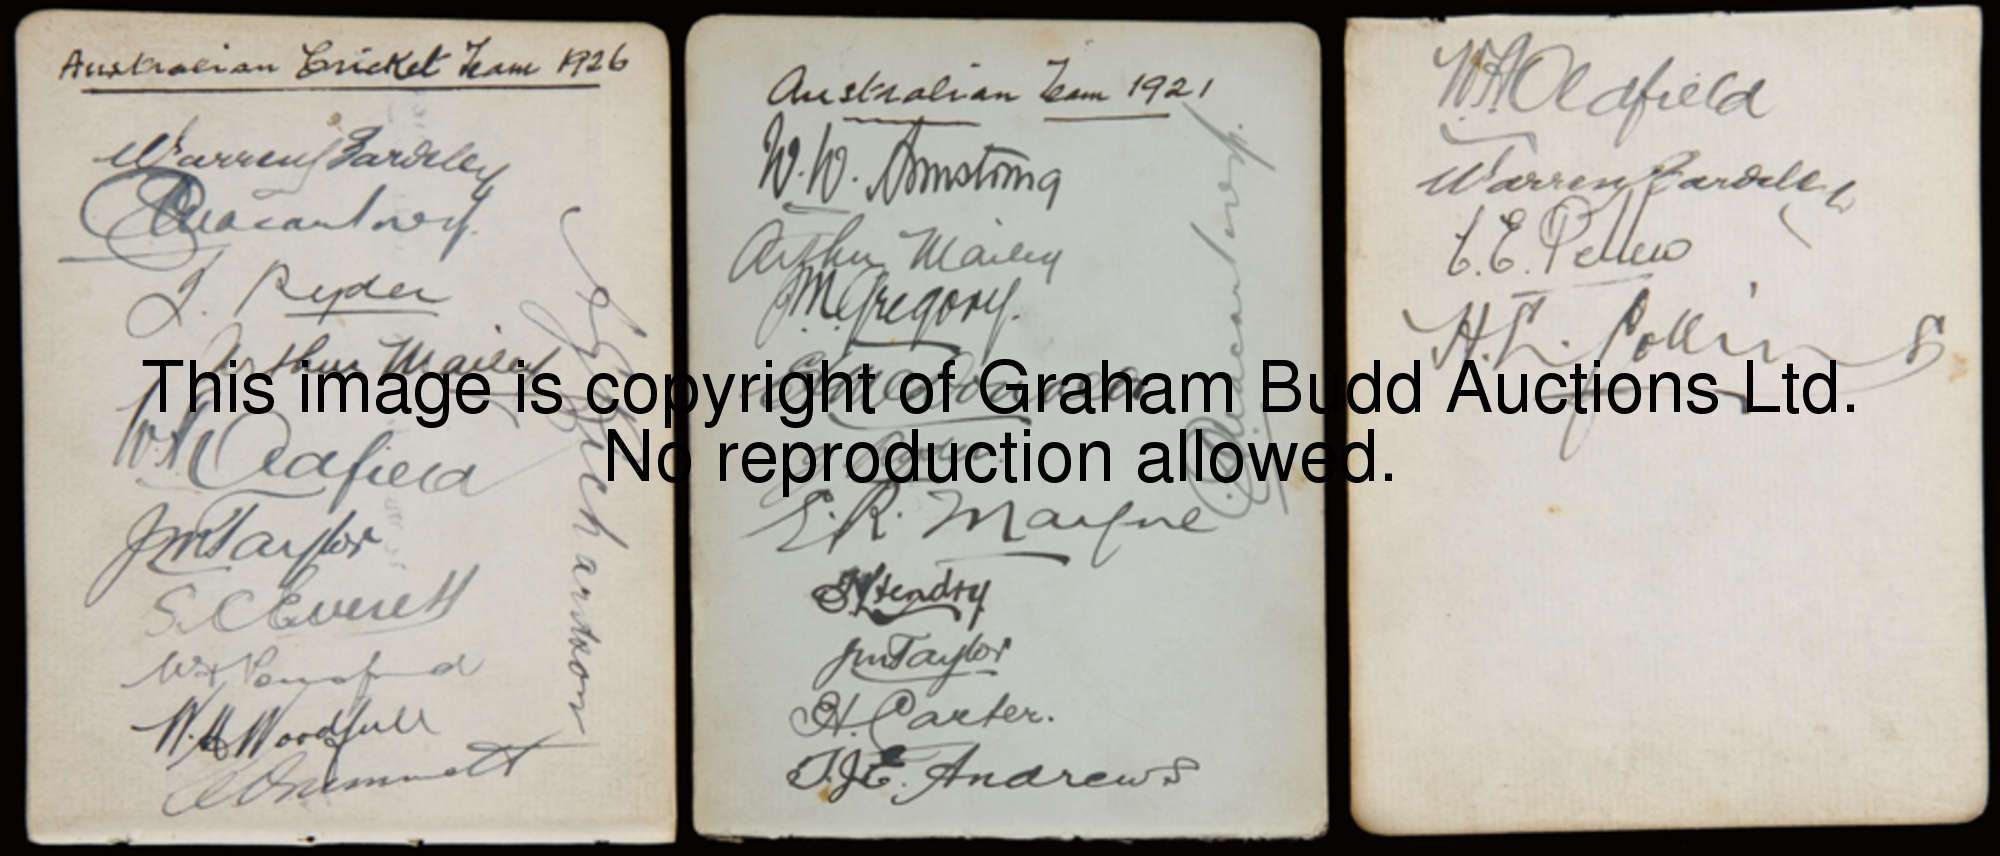 Australian Cricket Team 1926
Warren Bardsley
C G Macartney.
J. Ryder
Arthur Mailey
W A Oldfield
J M Taylor
S. C Everett
W H Ponsford
W. M Woodfull
C V Grimmett
A J Richardson
Australian Team 1921
W. W. Armstrong
Arthur Mailey
J. M. Gregory.
E. A. McDonald
J. Ryder.
E. R. Mayne
H L Hendry
J M Taylor
H. Carter.
T. J. E. Andrews
C. G. Macartney.
W. A Oldfield
Warren Bardsley
C. E. Pellew
H. L. Collins
This image is copyright of Graham Budd Auctions Ltd.
No reproduction allowed.